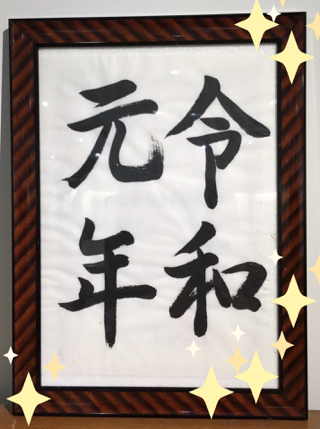 令和
元年